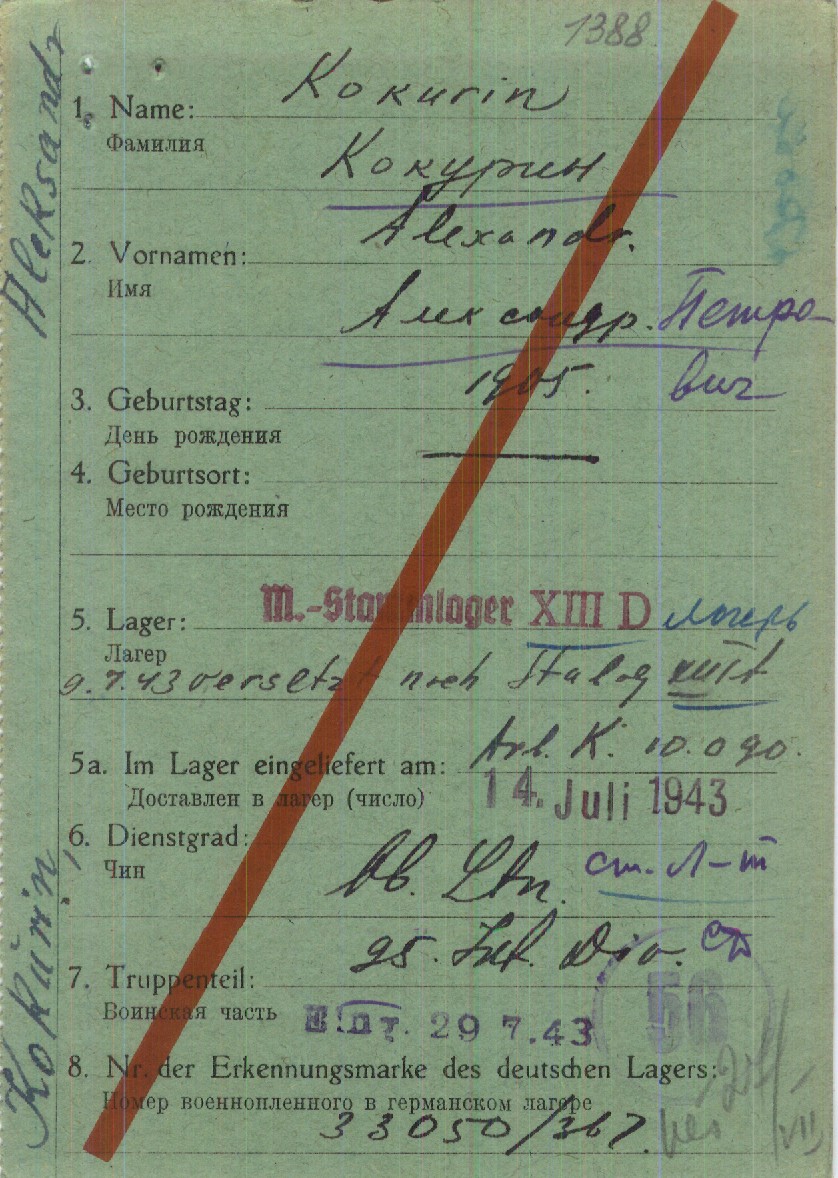 1388
1. Name: Kokurin
Фамилия
Кокурин
2. Vornamen: Alexandr.
Имя
Александр. Петро-
вич
3. Geburtstag: 1905.
День рождения
4. Geburtsort:
Место рождения
5. Lager: M.-Stammlager XIII D лагерь
Лагерь
9.7.43 versetzt nach Stalag
5a. Im Lager eingeliefert am: Arb. K. 10.090.
Доставлен в лагер (число) 14. Juli 1943
6. Dienstgrad:
Чин Ob. Ltn. ст. л-т
95. Inf. Div. СД
7. Truppenteil:
Воинская часть 29 7.43
56
8. Nr. der Erkennungsmarke des deutschen Lagers:
Номер военнопленного в германском лагере
33050/367.
VII
Kokürin, Aleksandr